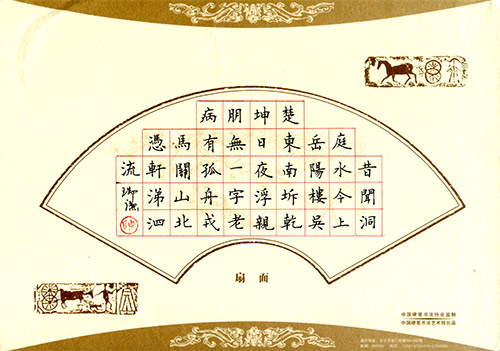 昔聞洞
庭水今上
岳陽樓吳
楚東南坼乾
坤日夜浮親
朋無一字老
病有孤舟戎
馬關山北
憑軒涕泗
流
扇 面
中国硬笔书法协会监制
中国硬笔书法艺术网出品